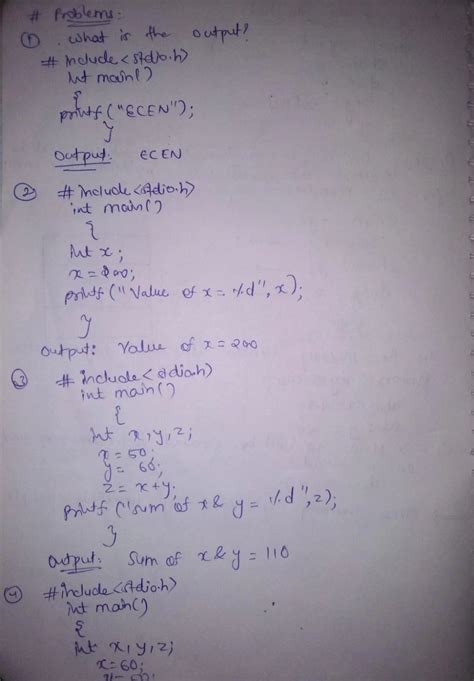 # Problems:
① What is the output?
# include<stdio.h>
int main()
{
printf("ECEN");
}
Output: ECEN
② # include<stdio.h>
int main()
{
int x;
x=200;
printf("Value of x= %d", x);
}
Output: Value of x=200
③ # include<stdio.h>
int main()
{
int x,y,z;
x=50;
y= 60;
z= x+y;
printf("sum of x & y = %d", z);
}
Output: Sum of x & y = 110
④ #include<stdio.h>
int main()
{
int x, y, z;
x=60;